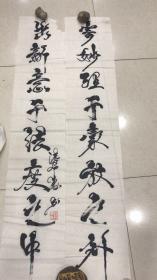 寄妙理于豪放之外
出新意于法度之中